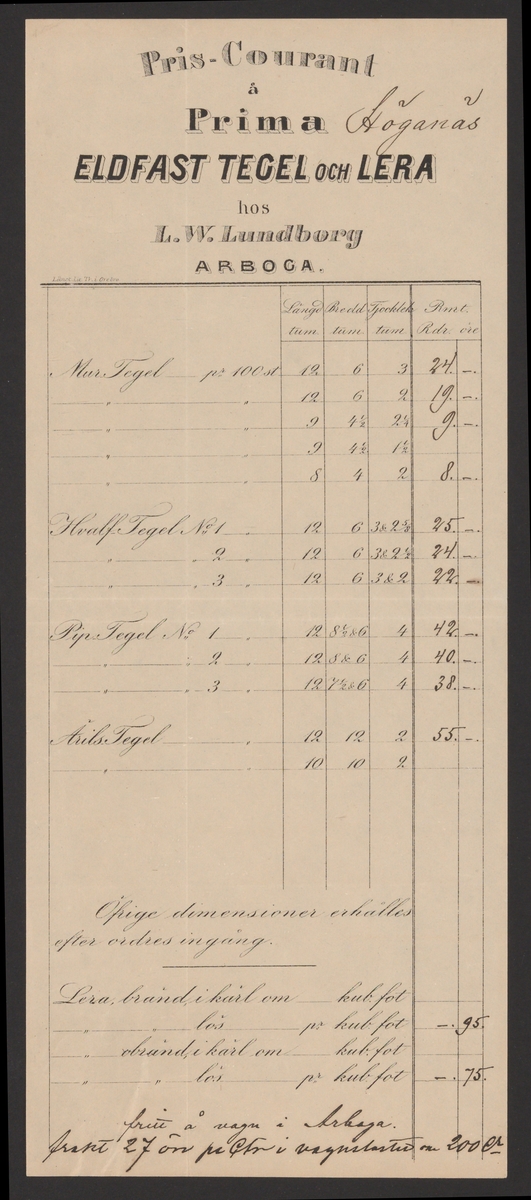 Pris-Courant
å
Prima Höganäs
ELDFAST TEGEL OCH LERA
hos
L. W. Lundborg
ARBOGA.
Längd Bredd Tjocklek Rmt.
tum. tum. tum. Rdr. öre
Mur Tegel pr 100 st 12 6 3 24. –.
„ „ 12 6 2 19. –.
„ „ 9 4½ 2¼ 9. –.
„ „ 9 4½ 1½
„ „ 8 4 2 8. –.
Hvalf Tegel No 1 „ 12 6 3&2⅝ 25. –.
„ „ 2 „ 12 6 3&2½ 24. –.
„ „ 3 „ 12 6 3&2 22. –
Pip Tegel No 1 „ 12 8½&6 4 42. –.
„ „ 2 „ 12 8&6 4 40. –.
„ „ 3 „ 12 7½&6 4 38. –.
Ärils Tegel „ 12 12 2 55. –.
„ „ 10 10 2
Öfrige dimensioner erhålles
efter ordres ingång.
Lera, bränd, i kärl om kub. fot
„ „ lös pr kub. fot –. 95.
„ obränd, i kärl om kub. fot
„ „ lös pr kub. fot –. 75.
fritt å vagn i Arboga.
frakt 27 öre pr Ctr i vagnslaster om 200 Ctr